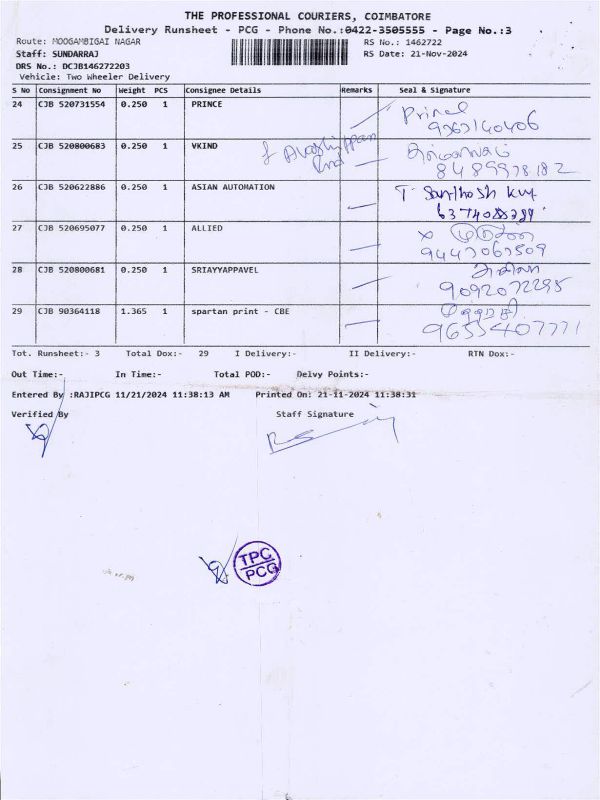 THE PROFESSIONAL COURIERS, COIMBATORE
Delivery Runsheet - PCG - Phone No.:0422-3505555 - Page No.:3
Route: MOOGAMBIGAI NAGAR RS No.: 1462722
Staff: SUNDARRAJ RS Date: 21-Nov-2024
DRS No.: DCJB146272203
Vehicle: Two Wheeler Delivery
S No Consignment No Weight PCS Consignee Details Remarks Seal & Signature
24 CJB 520731554 0.250 1 PRINCE Prince
25 CJB 520800683 0.250 1 VKIND
8489978182
26 CJB 520622886 0.250 1 ASIAN AUTOMATION T. Santhosh Kur
27 CJB 520695077 0.250 1 ALLIED
28 CJB 520800681 0.250 1 SRIAYYAPPAVEL
9092072295
29 CJB 90364118 1.365 1 spartan print - CBE
9655407771
Tot. Runsheet:- 3 Total Dox:- 29 I Delivery:- II Delivery:- RTN Dox:-
Out Time:- In Time:- Total POD:- Delvy Points:-
Entered By :RAJIPCG 11/21/2024 11:38:13 AM Printed On: 21-11-2024 11:38:31
Verified By Staff Signature
TPC
PCG